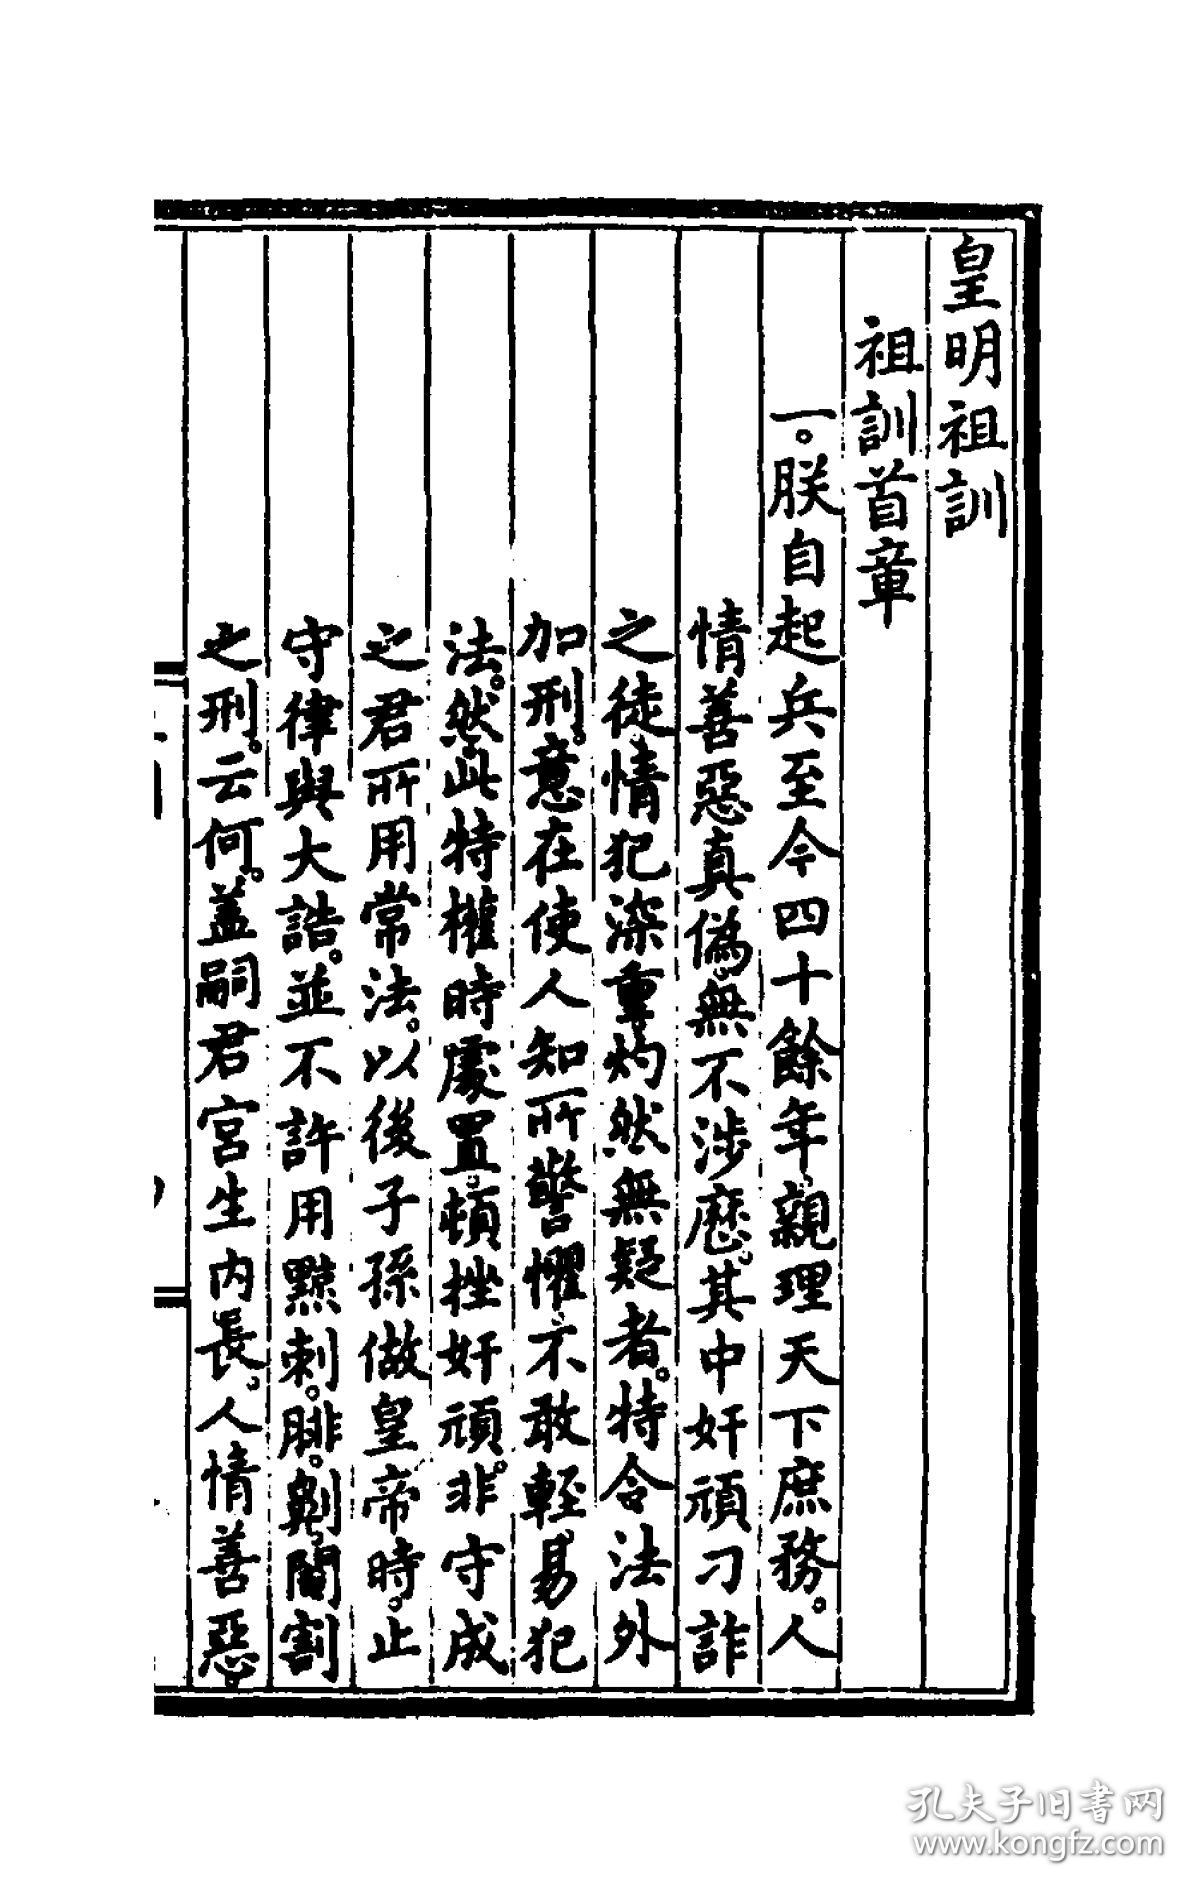 皇明祖訓
祖訓首章
一。朕自起兵至今四十餘年。親理天下庶務。人
情善惡真偽。無不涉歷。其中奸頑刁詐
之徒。情犯深重。灼然無疑者。特令法外
加刑。意在使人知所警懼。不敢輕易犯
法。然此特權時處置。頓挫奸頑。非守成
之君所用常法。以後子孫做皇帝時。止
守律與大誥。並不許用黥刺。腓。劓。閹割
之刑。云何。蓋嗣君宮生內長。人情善惡。
孔夫子旧書网
www.kongfz.com